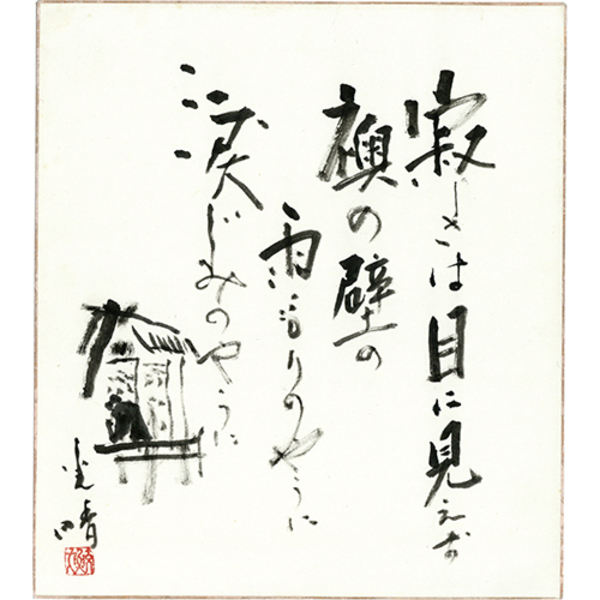 寂しさは目に見えず
襖の壁の
雨もりのやうに
涙じみのやうに
光晴